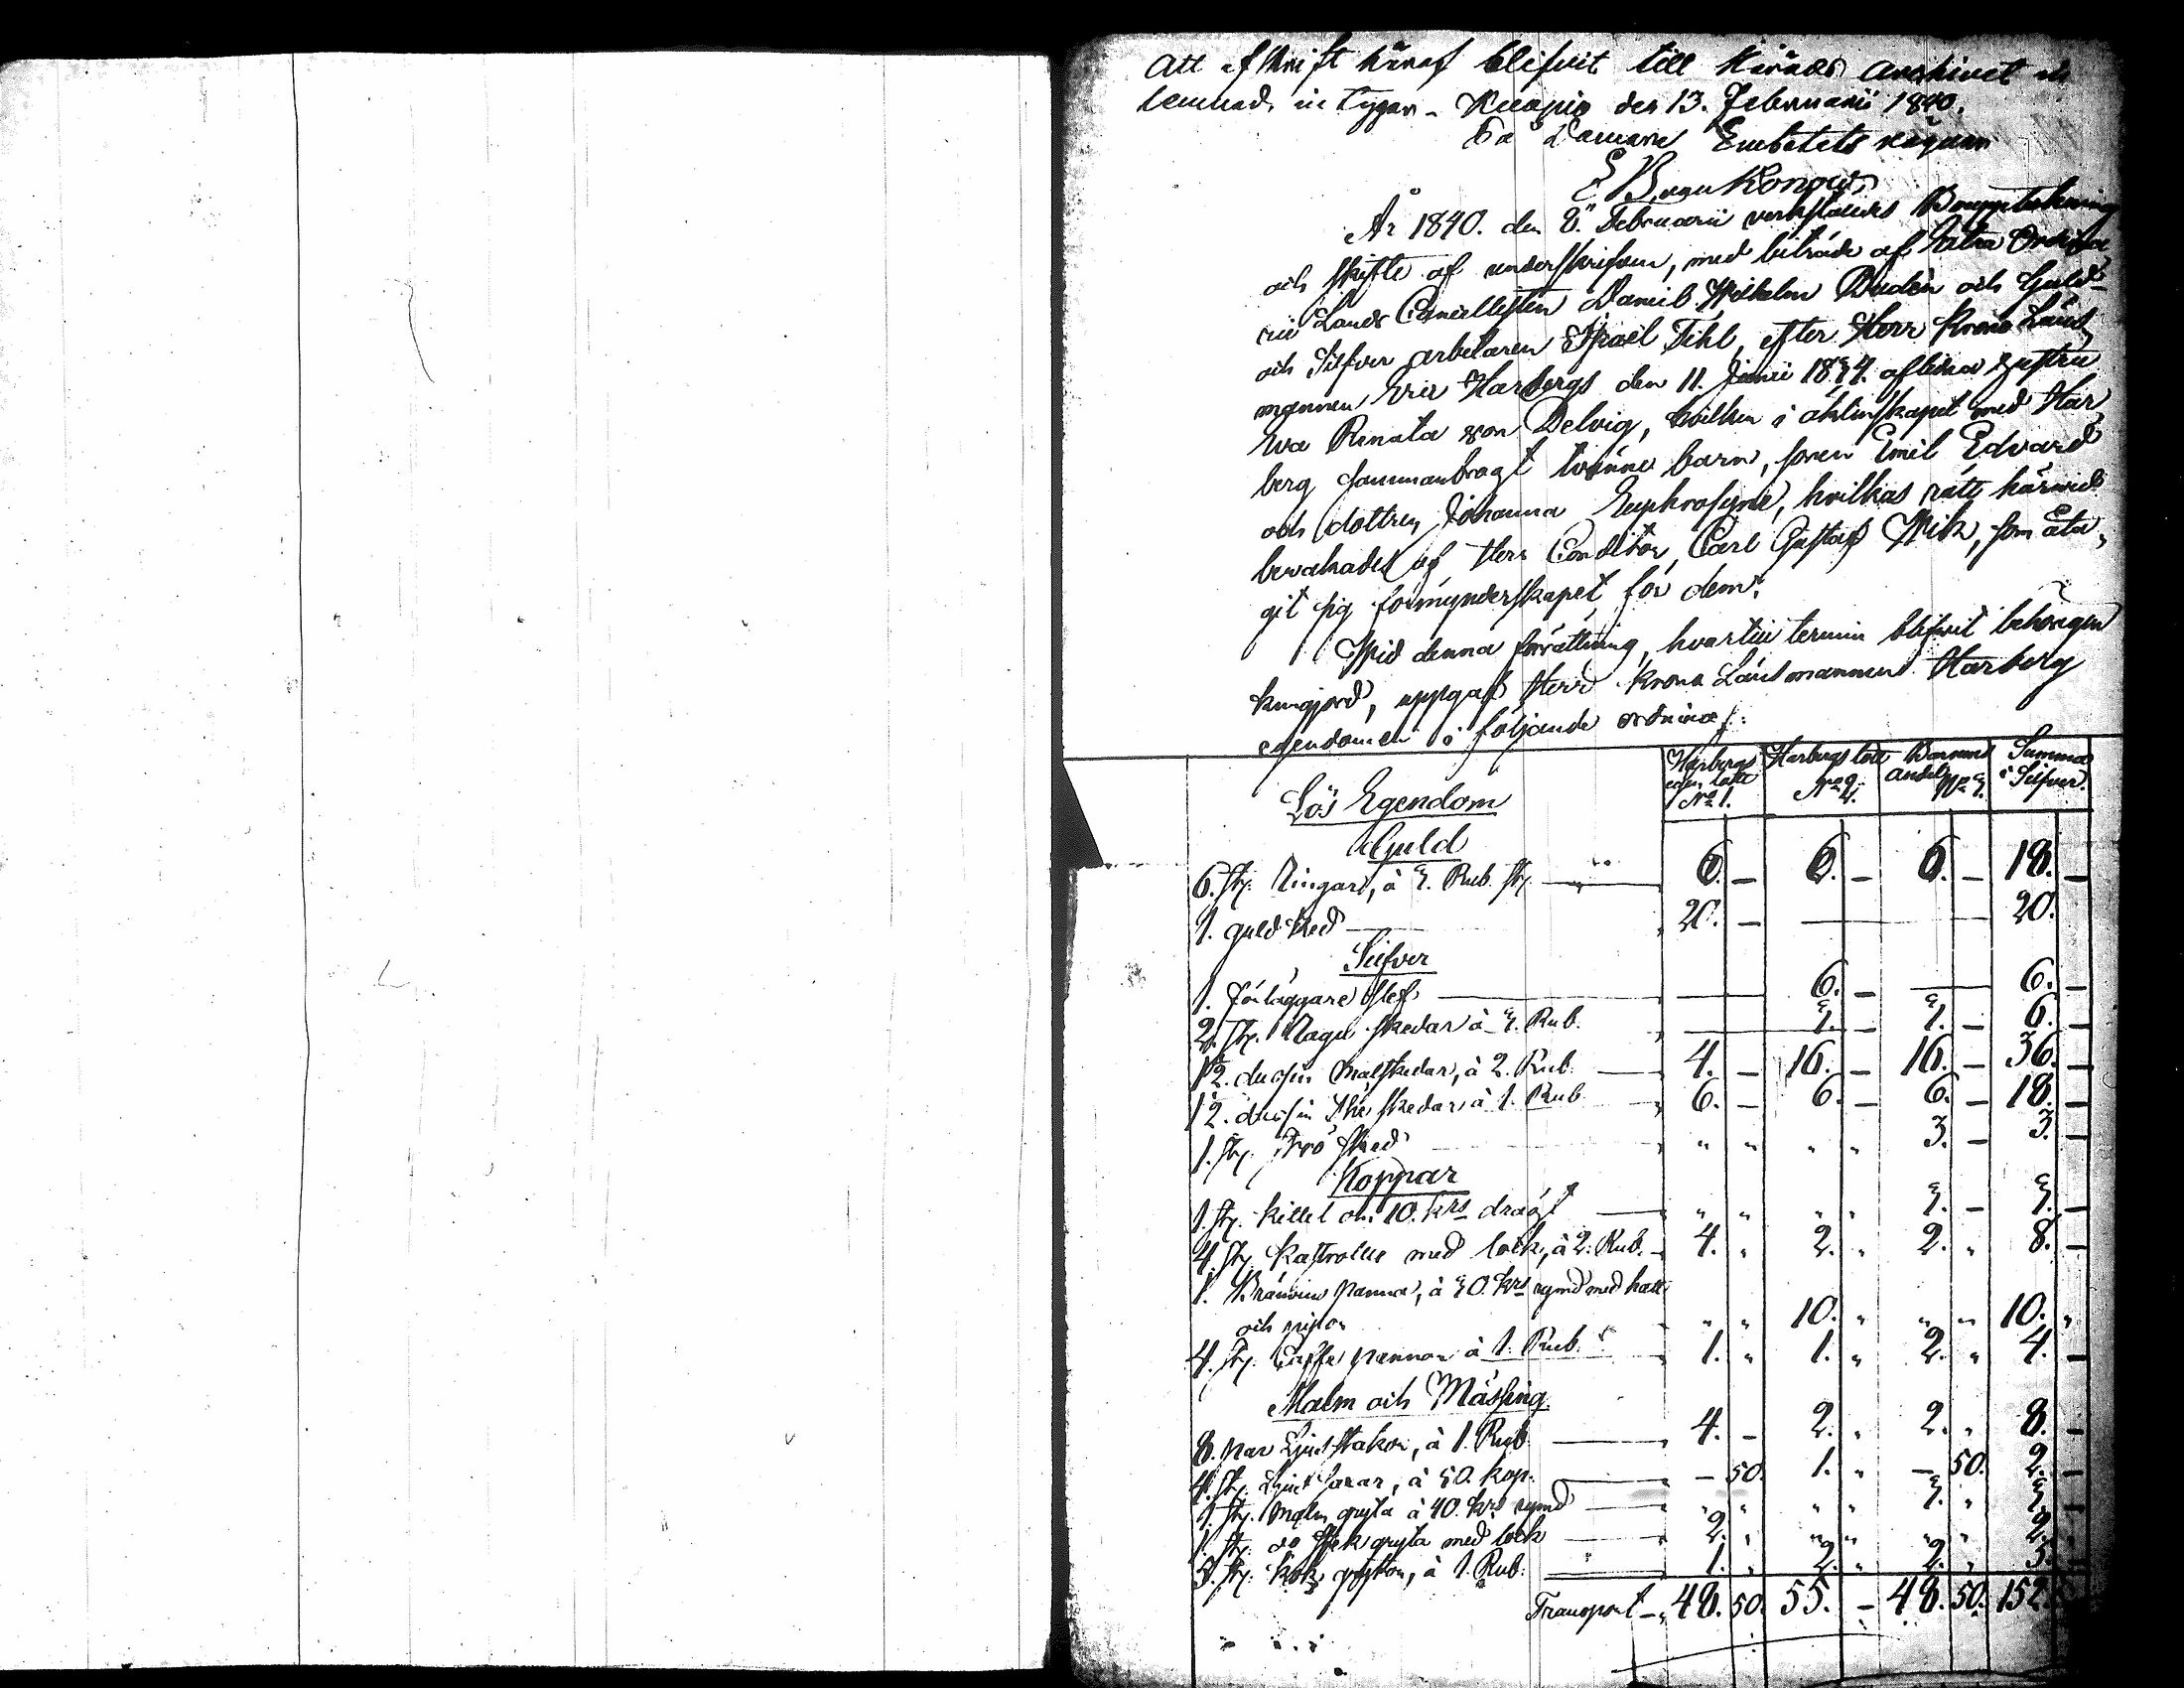 Att afskrift häraf blifvit till Härads archivet
lemnad, in tygar. Kuopio den 13. Februarii 1840.
På Domare Embetets vägnar
År 1840. den 8. Februarii verkstäldes Bouppteckning
och skifte af underskrifven, med biträde af Extra Ordina
rie Lands Cancellisten Daniel Wilhelm Budén och Guld-
och Silfver arbetaren Israël Tihl, efter Herr Krono Läns
mannen Eric Harbergs den 11. Junii 1834. aflidna hustru
Eva Renata von Delvig, hvilken i äktenskapet med Har
berg sammanbragt tvänne barn, sonen Emil Edvard
och dottren Johanna Euphrosyne, hvilkas rätt härvid
bevakades af Herr Conditor Carl Gustaf Wik, som åta
git sig förmynderskapet för dem.
Wid denna förrättning, hvartill termin blifvit behörigen
kungjord, uppgaf Herr Krono Länsmannen Harberg
egendomen i följande ordning:
Harbergs egen lott No 1. Harbergs lott No 2. Barnens andel No 3. Summa i Silfver.
Lös Egendom
Guld
6. st. Ringar, à 3. Rub. st. 6. — 6. — 6. — 18. —
1. guld ked 20. — — 20.
Silfver
1. Förläggare slef — 6. — — 6. —
2. st. Ragu skedar à 3. Rub. — 3. — 3. — 6. —
1½. dussin Matskedar, à 2. Rub. 4. — 16. — 16. — 36. —
1½. dussin The skedar à 1. Rub. 6. — 6. — 6. — 18. —
1. st. Strö sked " " " " 3. — 3. —
Koppar
1. st. kittel om 10. krs drägt " " " " 3. — 3. —
4. st. Kastroller med lock, à 2. Rub. 4. " 2. " 2. " 8. —
1. Bränvins panna, à 30. krs rymd med hatt
och pipor " " 10. " " " 10. "
4. st. Caffe pannor à 1. Rub. 1. " 1. " 2. " 4. —
Malm och Mässing
8. par Ljusstakar, à 1. Rub. 4. — 2. " 2. " 8. —
4. st. Ljus saxar, à 50. kop. — 50. 1. " — 50. 2. —
1. st. Malm gryta à 40. krs rymd " " " " 3. " 3. —
1. st. do stek gryta med lock 2. " " " " " 2. "
5. st. kok grytor, à 1. Rub. 1. " 2. " 2. " 5.
Transport 48. 50. 55. — 48. 50. 152.